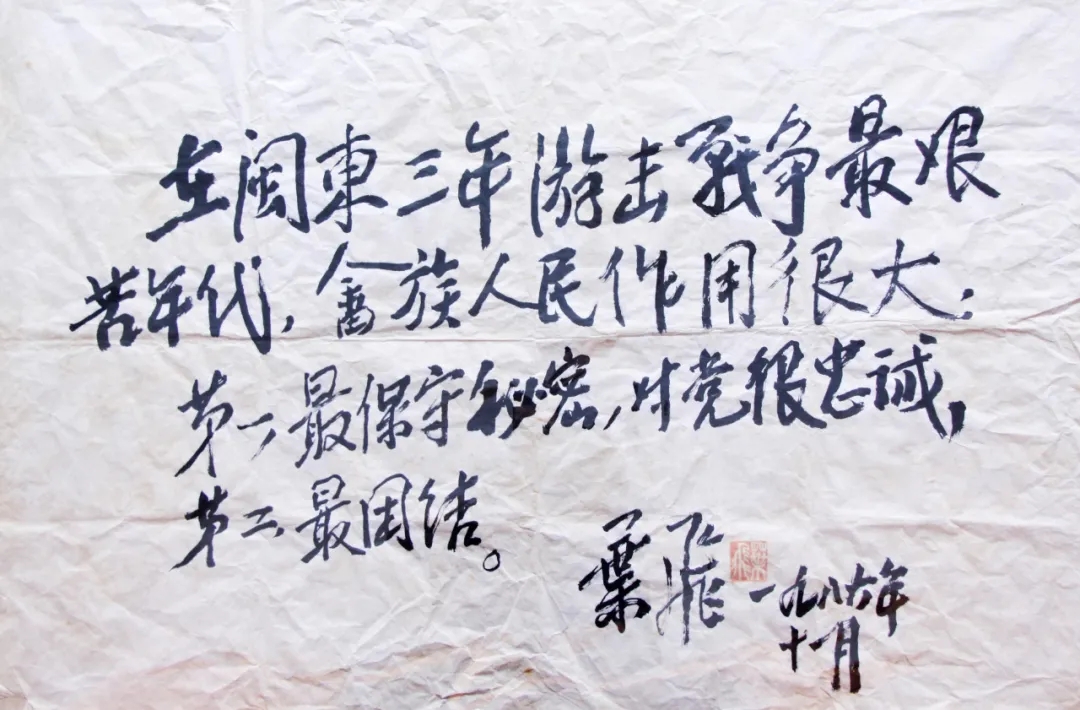 在闽東三年游击戰争最艰
苦年代，畲族人民作用很大；
第一最保守秘密，对党很忠诚，
第二最团结。
葉飛
一九八六年
十一月